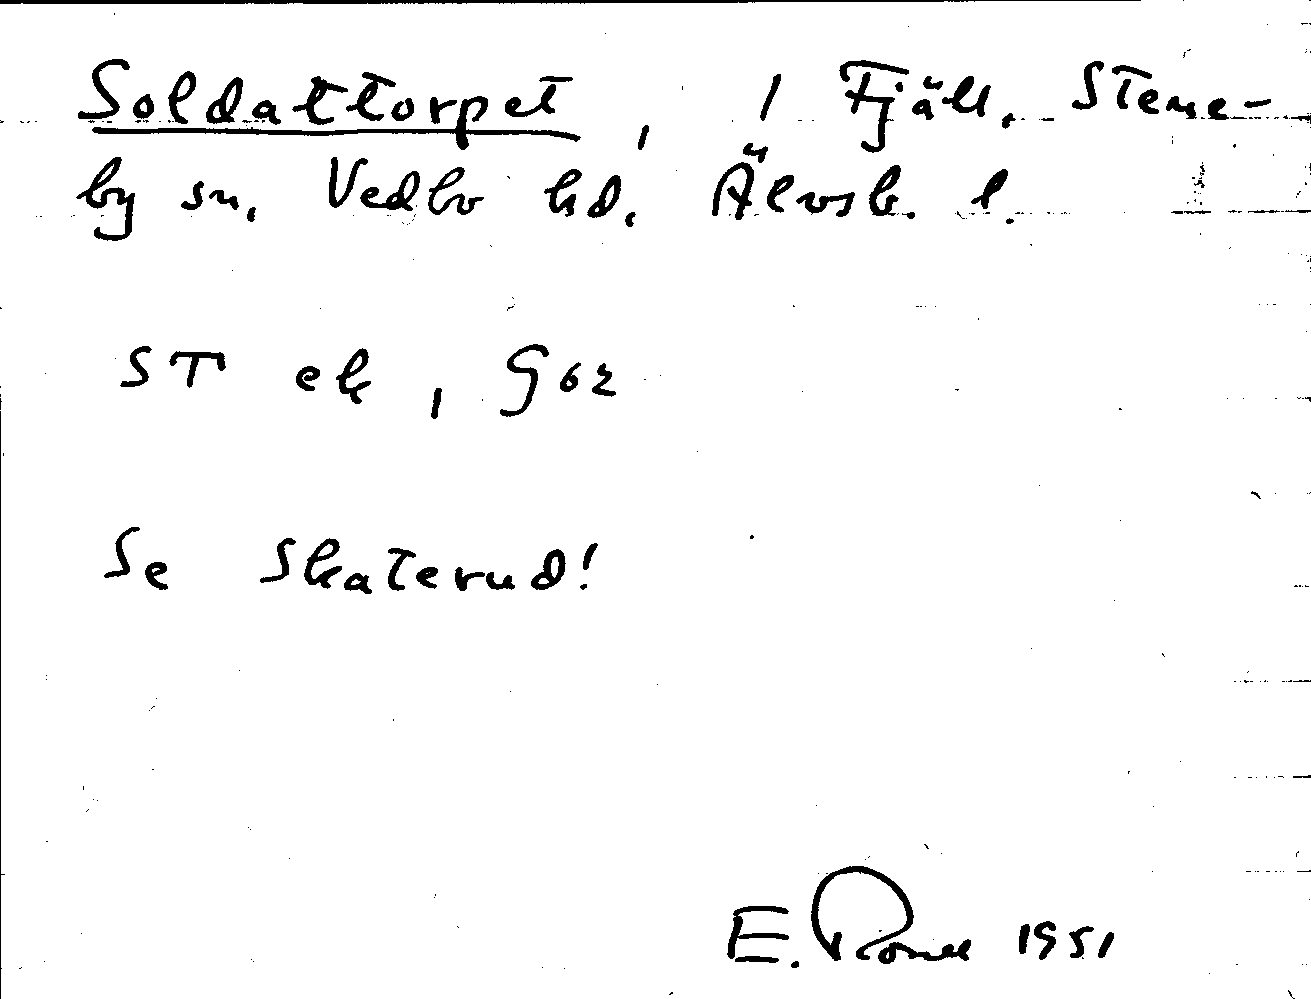 Soldattorpet, 1 Fjäll, Stene-
by sn, Vedbo hd, Älvsb. l.
ST ek, G62
Se Skaterud!
E. 1951